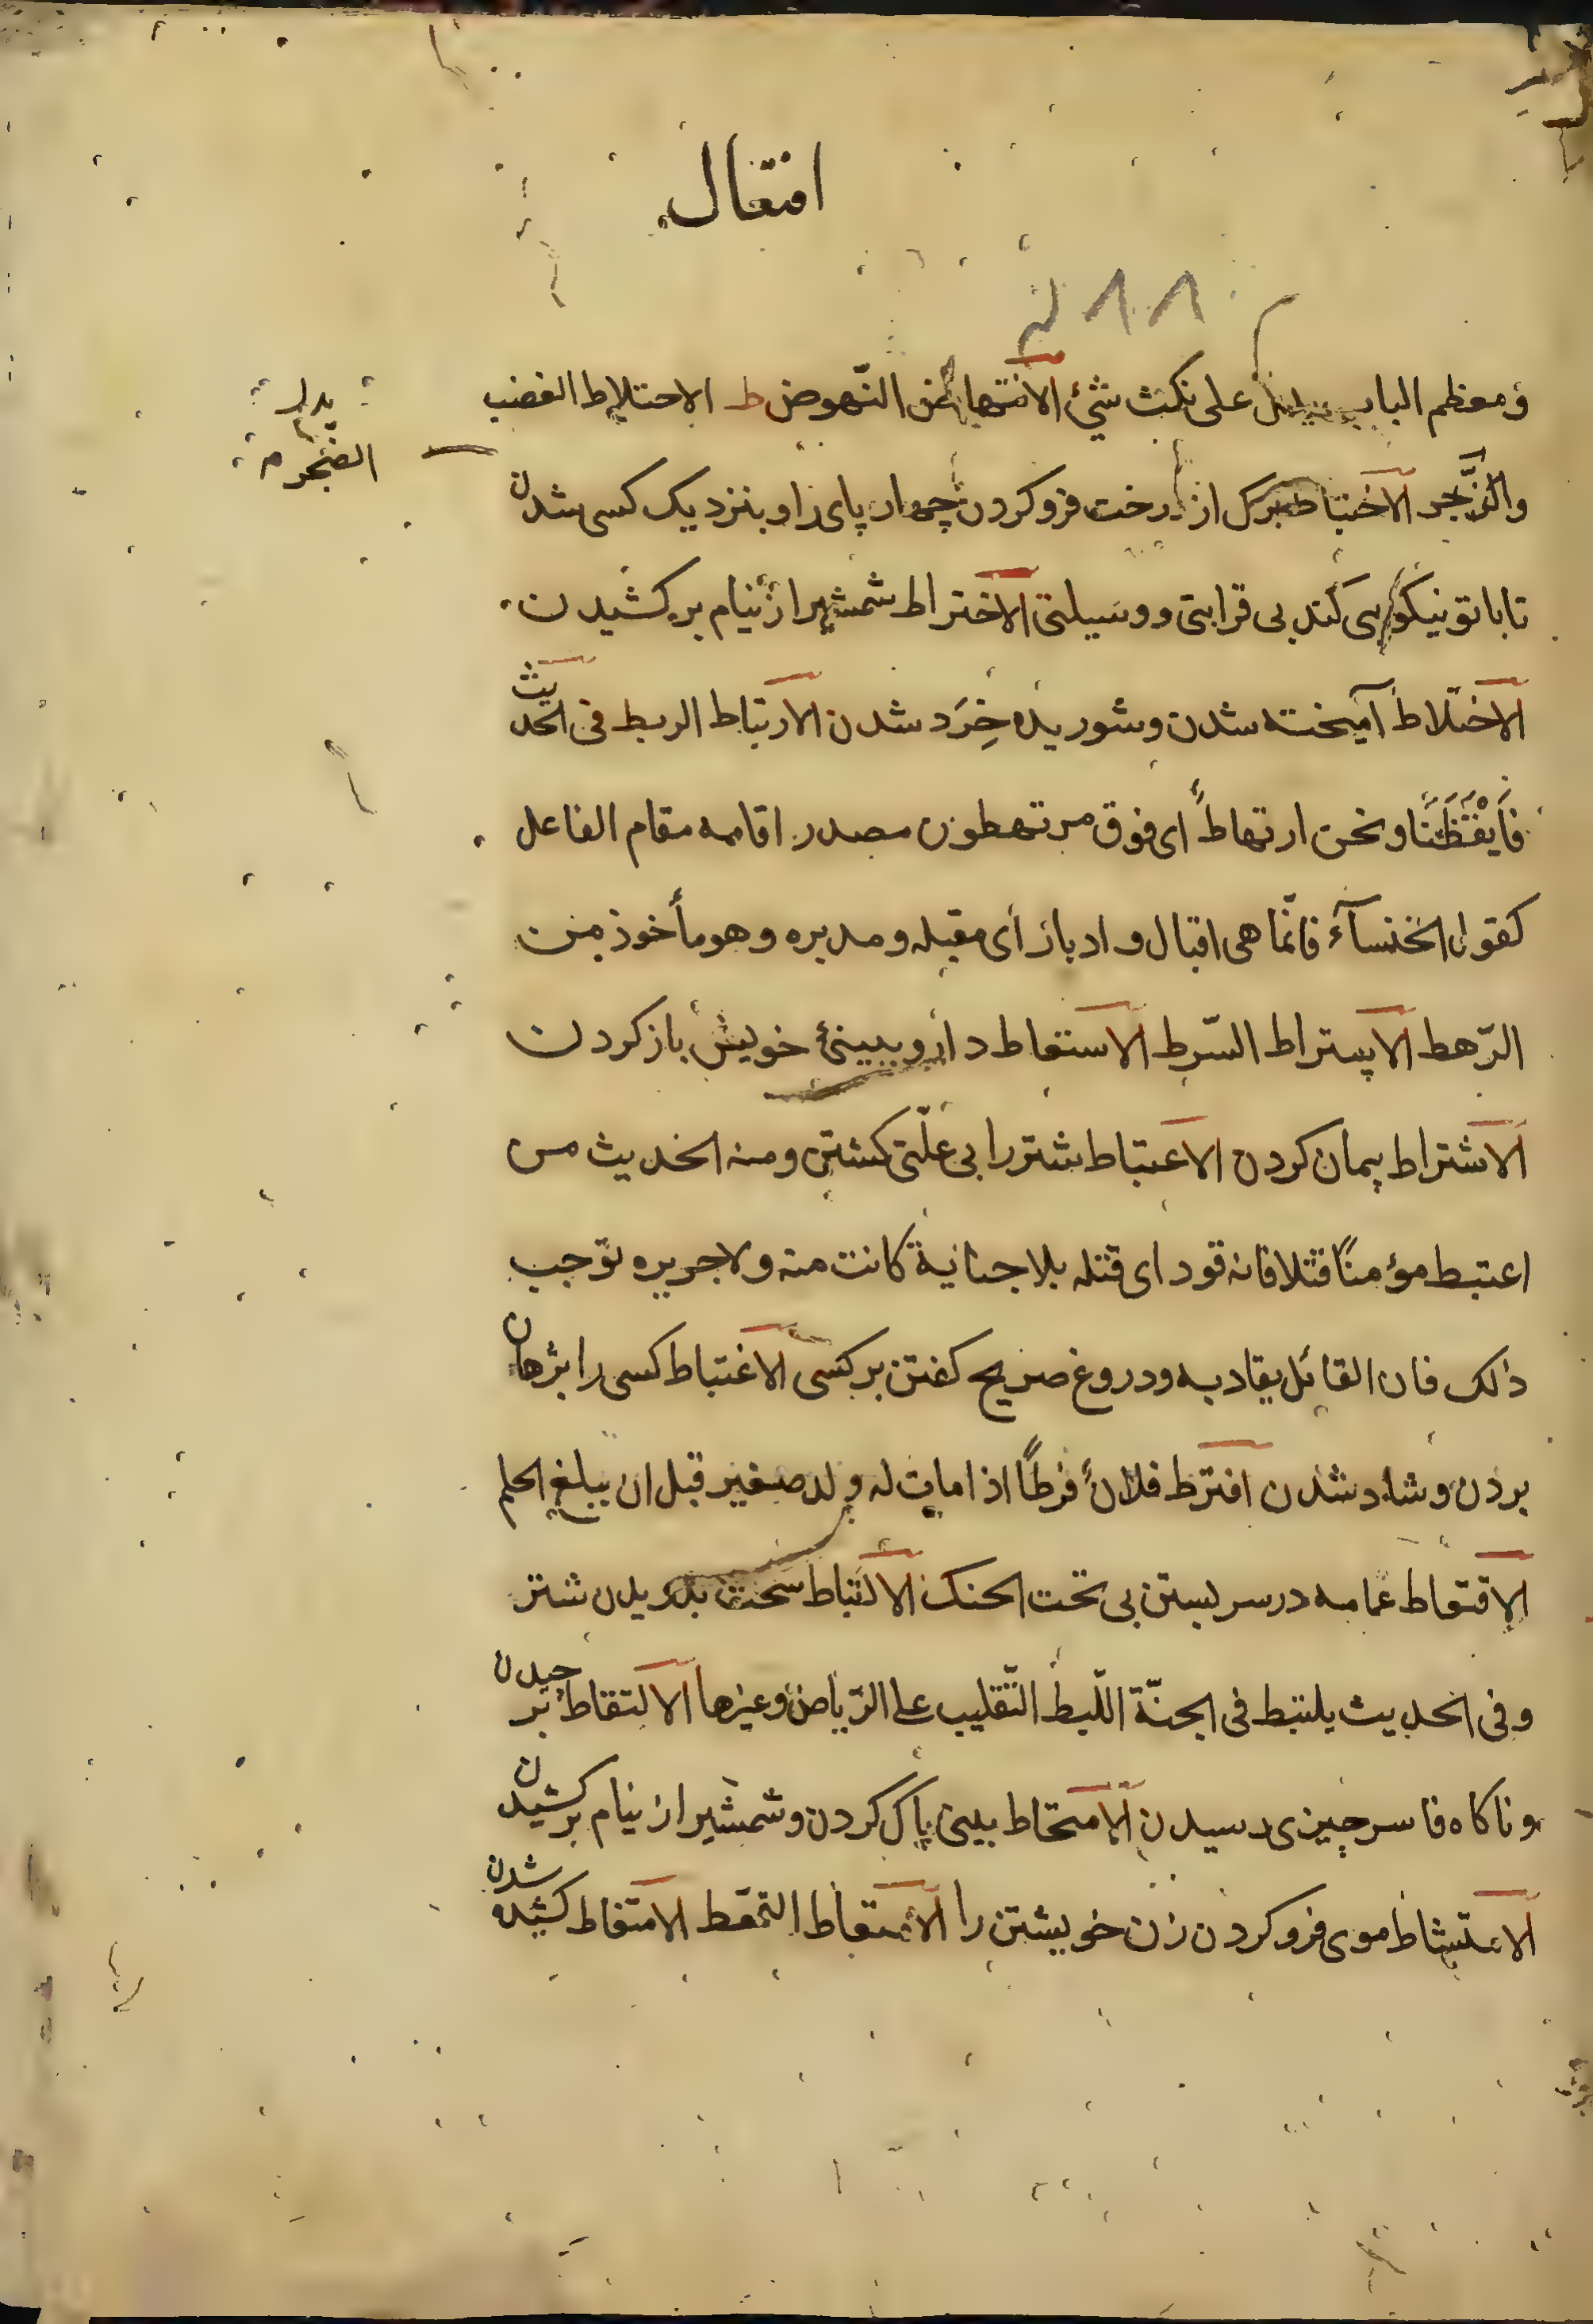 افتعال
۸۸
ومعظم الباب يدل على نكث شيئ الانتهاض النّهوض ط الاحتلاط الغضب
يدل
الضجر
والزّجر الاختباط برك از درخت فرو كردن چهار پاى را و بنزديك كسى شدن
تا با تو نيكويى كند بى قرابتى و وسيلتى الاختراط شمشير از نيام بر كشيدن
الاختلاط آميخته شدن و شوريده خِرَد شدن الارتباط الربط فى الحديث
فأيقظنا ونحن ارتهاطٌ اى فوق مرتهطون مصدر اقامه مقام الفاعل
كقول الخنسآء فانّما هى اقبال و ادبار أى مقبله و مدبره و هو مأخوذ من
الرّهط الاستراط السّرط الاستعاط دارو ببينئ خويش باز كردن
الاشتراط پيمان كردن الاعتباط شتر را بى علّتى كشتن ومنه الحديث من
اعتبط مؤمنًا قتلا فانه قود اى قتله بلا جناية كانت منه ولا جريره توجب
ذلك فان القاتل يقاد به و دروغ صريح كفتن بر كسى الاغتباط كسى را بژهان
بردن و شاد شدن افترط فلانٌ فرطًا اذا مات له ولد صغير قبل ان يبلغ الحلم
الاقتعاط عمامه در سر بستن بى تحت الحنك الالتباط سخت شتر
وفى الحديث يلتبط فى الجنّة اللّبط التّقليب على الرّياض وغيرها الالتقاط بر چيدن
و ناكاه فا سر چيزى رسيدن الامتخاط بينى پاك كردن و شمشير از نيام بر كشيدن
الامتشاط موى فرو كردن زن خويشتن را الامتعاط التمعّط الامتغاط كشيده شدن